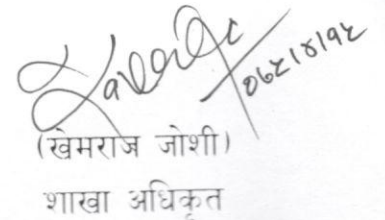 ०६९।४।१९
(खेमराज जोशी)
शाखा अधिकृत